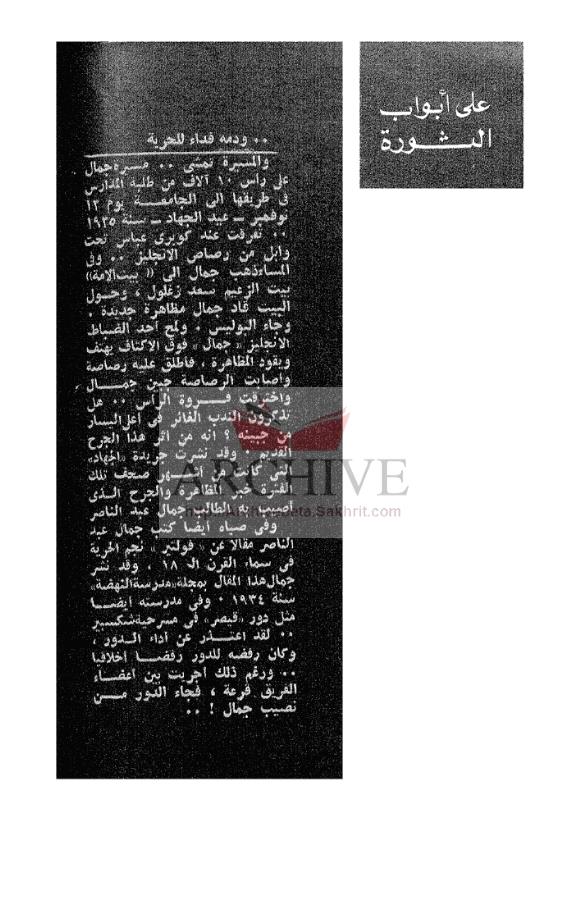 على أبواب
الثورة
.. ودمه فداء للحرية
والمسيرة تمشى .. مسيرة جمال
على رأس ١٠ آلاف من طلبة المدارس
فى طريقها الى الجامعة يوم ١٣
نوفمبر – عيد الجهاد – سنة ١٩٣٥
.. تفرقت عند كوبرى عباس تحت
وابل من رصاص الانجليز .. وفى
المساء ذهب جمال الى « بيت الامة »
بيت الزعيم سعد زغلول ، وحول
البيت قاد جمال مظاهرة جديدة .
وجاء البوليس . ولمح أحد الضباط
الانجليز « جمال » فوق الاكتاف يهتف
ويقود المظاهرة ، فأطلق عليه رصاصة
وأصابت الرصاصة جبين جمال
واخترقت فروة الرأس .. هل
تذكرون الندب الغائر فى أعلى اليسار
من جبينه ؟ انه من أثر هذا الجرح
القديم . وقد نشرت جريدة «الجهاد»
التى كانت من أشهر صحف تلك
الفترة خبر المظاهرة والجرح الذى
أصيب به الطالب جمال عبد الناصر
وفى صباه أيضا كتب جمال عبد
الناصر مقالا عن « فولتير » نجم الحرية
فى سماء القرن الـ ١٨ . وقد نشر
جمال هذا المقال بمجلة «مدرسة النهضة»
سنة ١٩٣٤ . وفى مدرسته أيضا
مثل دور «قيصر» فى مسرحية شكسبير
.. لقد اعتذر عن أداء الدور ،
وكان رفضه للدور رفضا أخلاقيا
.. ورغم ذلك أجريت بين أعضاء
الفريق قرعة ، فجاء الدور من
نصيب جمال ! ..
ARCHIVE
http://Archivebeta.Sakhrit.com